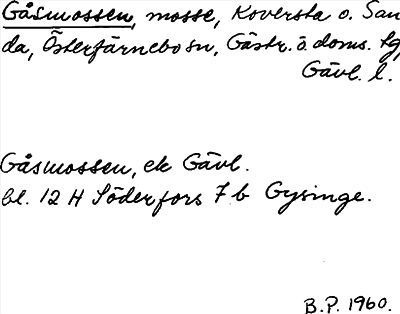 Gåsmossen, mosse, Koversta o. San
da, Österfärnebo sn, Gästr. ö. doms. tg,
Gävl. l.
Gåsmossen, ek Gävl.
bl. 12 H Söderfors 7 b Gysinge.
B.P. 1960.